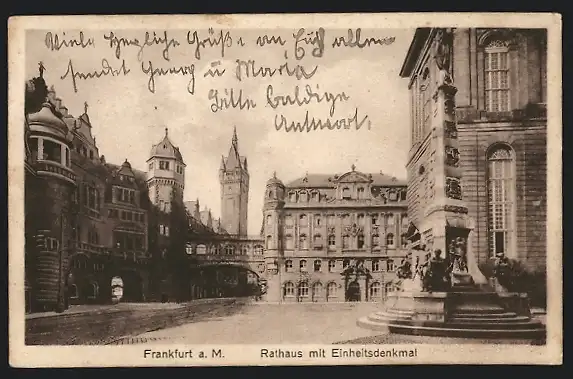 Viele herzliche Grüße an Euch allen
sendet Georg u Maria
Bitte baldige
Antwort.
Frankfurt a. M. Rathaus mit Einheitsdenkmal